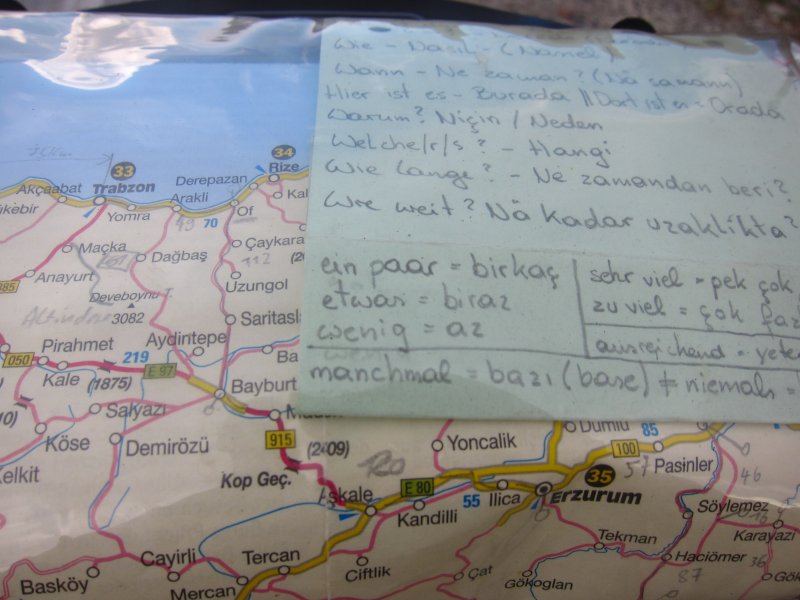 Wie - Nasıl - (Names)
Wann - Ne zaman? (Nä samann)
Hier ist es - Burada || Dort ist es = Orada
Warum? Niçin / Neden
Welche/r/s? - Hangi
Wie lange? - Ne zamandan beri?
Wie weit? Nä kadar uzaklıkta?
ein paar = birkaç
etwas = biraz
wenig = az
sehr viel = pek çok
zu viel = çok faz
ausreichend = yete
manchmal = bazı (base) ≠ niemals =
33
34
Rize
Derepazan
Akçaabat
Trabzon
Arakli
Kal
ükebir
Yomra
Of
49 70
Maçka
Dağbaş
Çaykara
112
(20
Anayurt
Uzungol
085
Deveboynu T.
3082
Saritasl
Aydintepe
Pirahmet
Ba
050
219
E 97
Kale
(1875)
Bayburt
Salyazi
Köse
Demirözü
915
(2409)
Yoncalik
Dumlu
85
100
Kop Geç.
120
57
Pasinler
elkit
35
46
Aşkale
E 80
55
Ilica
Erzurum
Kandilli
Söylemez
Karayazi
Tekman
Haciömer
36
Cayirli
Tercan
Ciftlik
Çat
87
Basköy
Mercan
Gökoglan
Gök